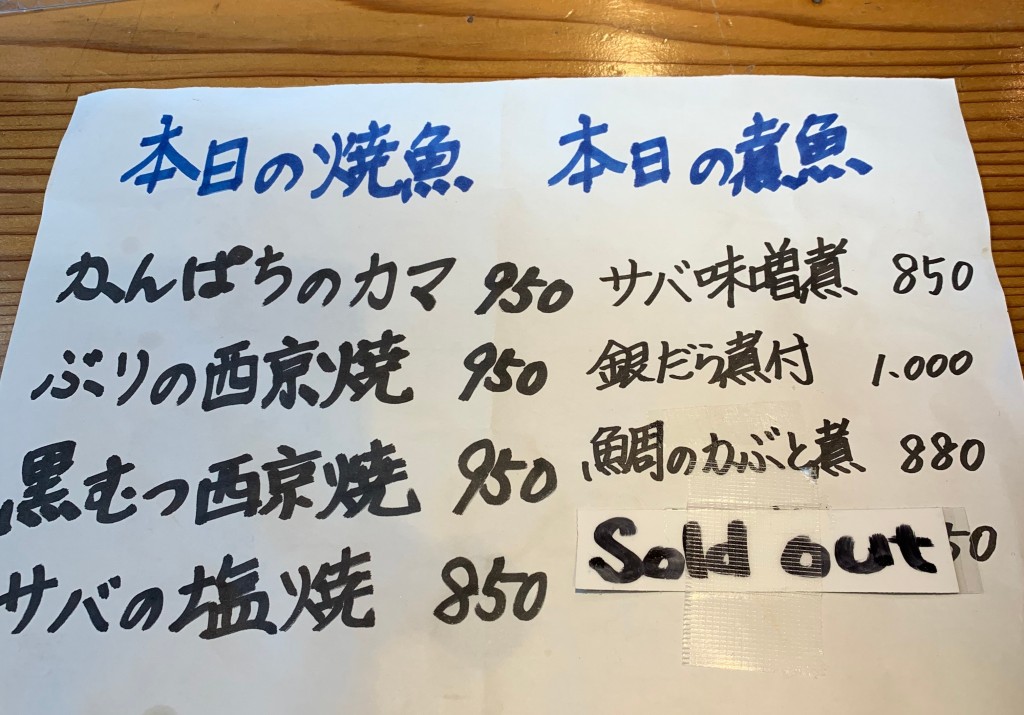 本日の焼魚
かんぱちのカマ 950
ぶりの西京焼 950
黒むつ西京焼 950
サバの塩焼 850
本日の煮魚
サバ味噌煮 850
銀だら煮付 1.000
鯛のかぶと煮 880
Sold out 50